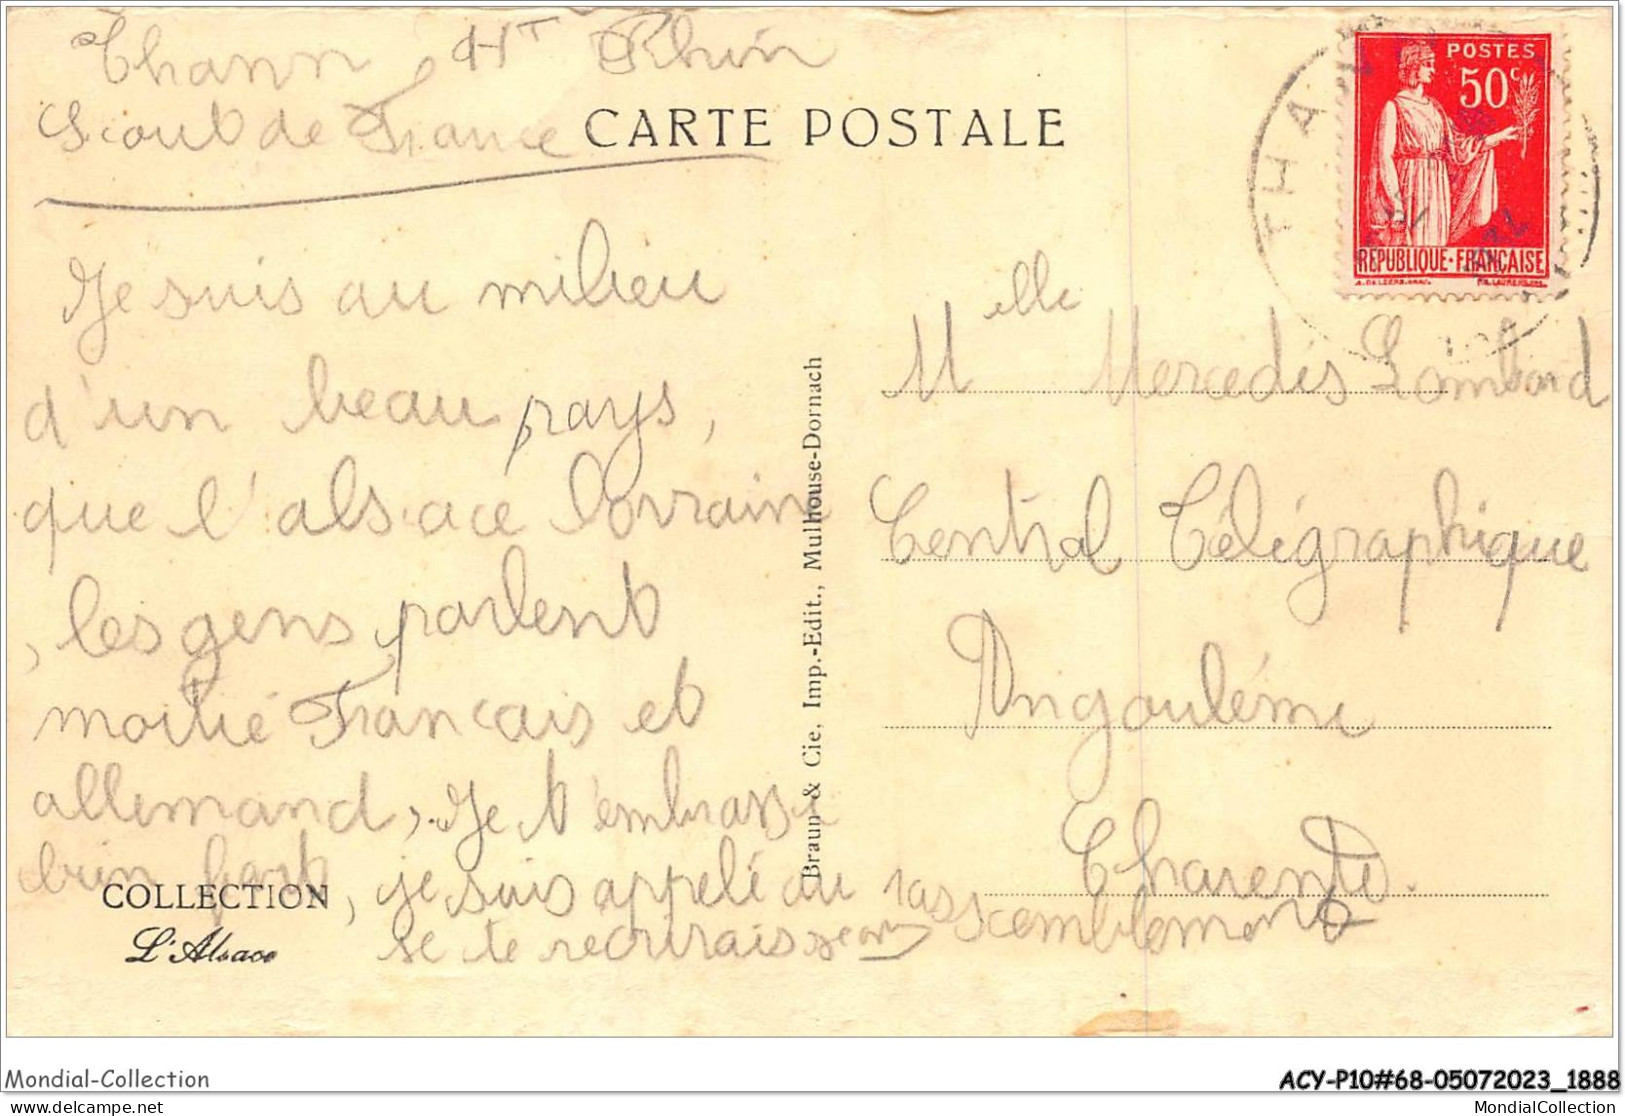 Thann Ht Rhin
Scout de France
CARTE POSTALE
Je suis au milieu
d'un beau pays,
que l'alsace lorraine
, les gens parlent
moitié Francais et
allemand, Je t'embrasse
bien fort, je suis appelé au rassemblement
je te recrirais Jean
COLLECTION
L'Alsace
Braun & Cie. Imp.-Edit., Mulhouse-Dornach
THANN
POSTES
50c
REPUBLIQUE·FRANÇAISE
Melle Mercedès Lombard
Central Télégraphique
Angoulême
Charente.
Mondial-Collection
ACY-P10#68-05072023_1888
www.delcampe.net
MondialCollection